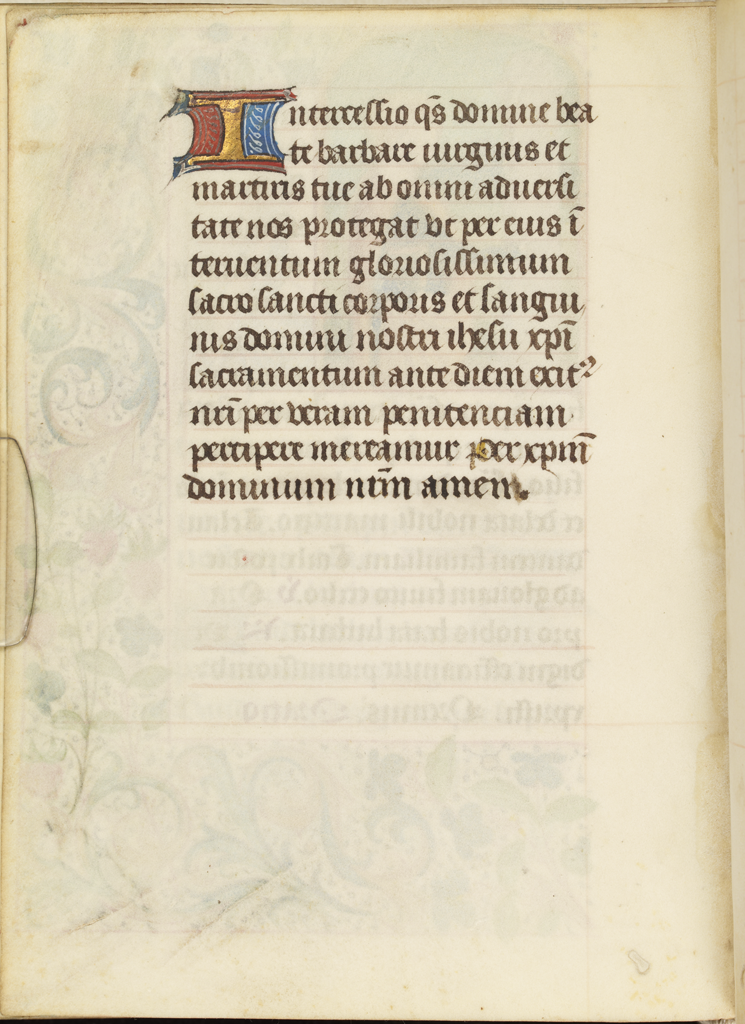 Intercessio q̄s domine bea
te barbare uirginis et
martiris tue ab omni aduersi
tate nos protegat vt per eius ī
teruentum gloriosissimum
sacro sancti corporis et sangui
nis domini nostri ihesu xp̄i
sacramentum ante diem exit᷒
nr̄i per veram penitenciam
percipere mereamur Per xp̄m
dominum nr̄m amen.